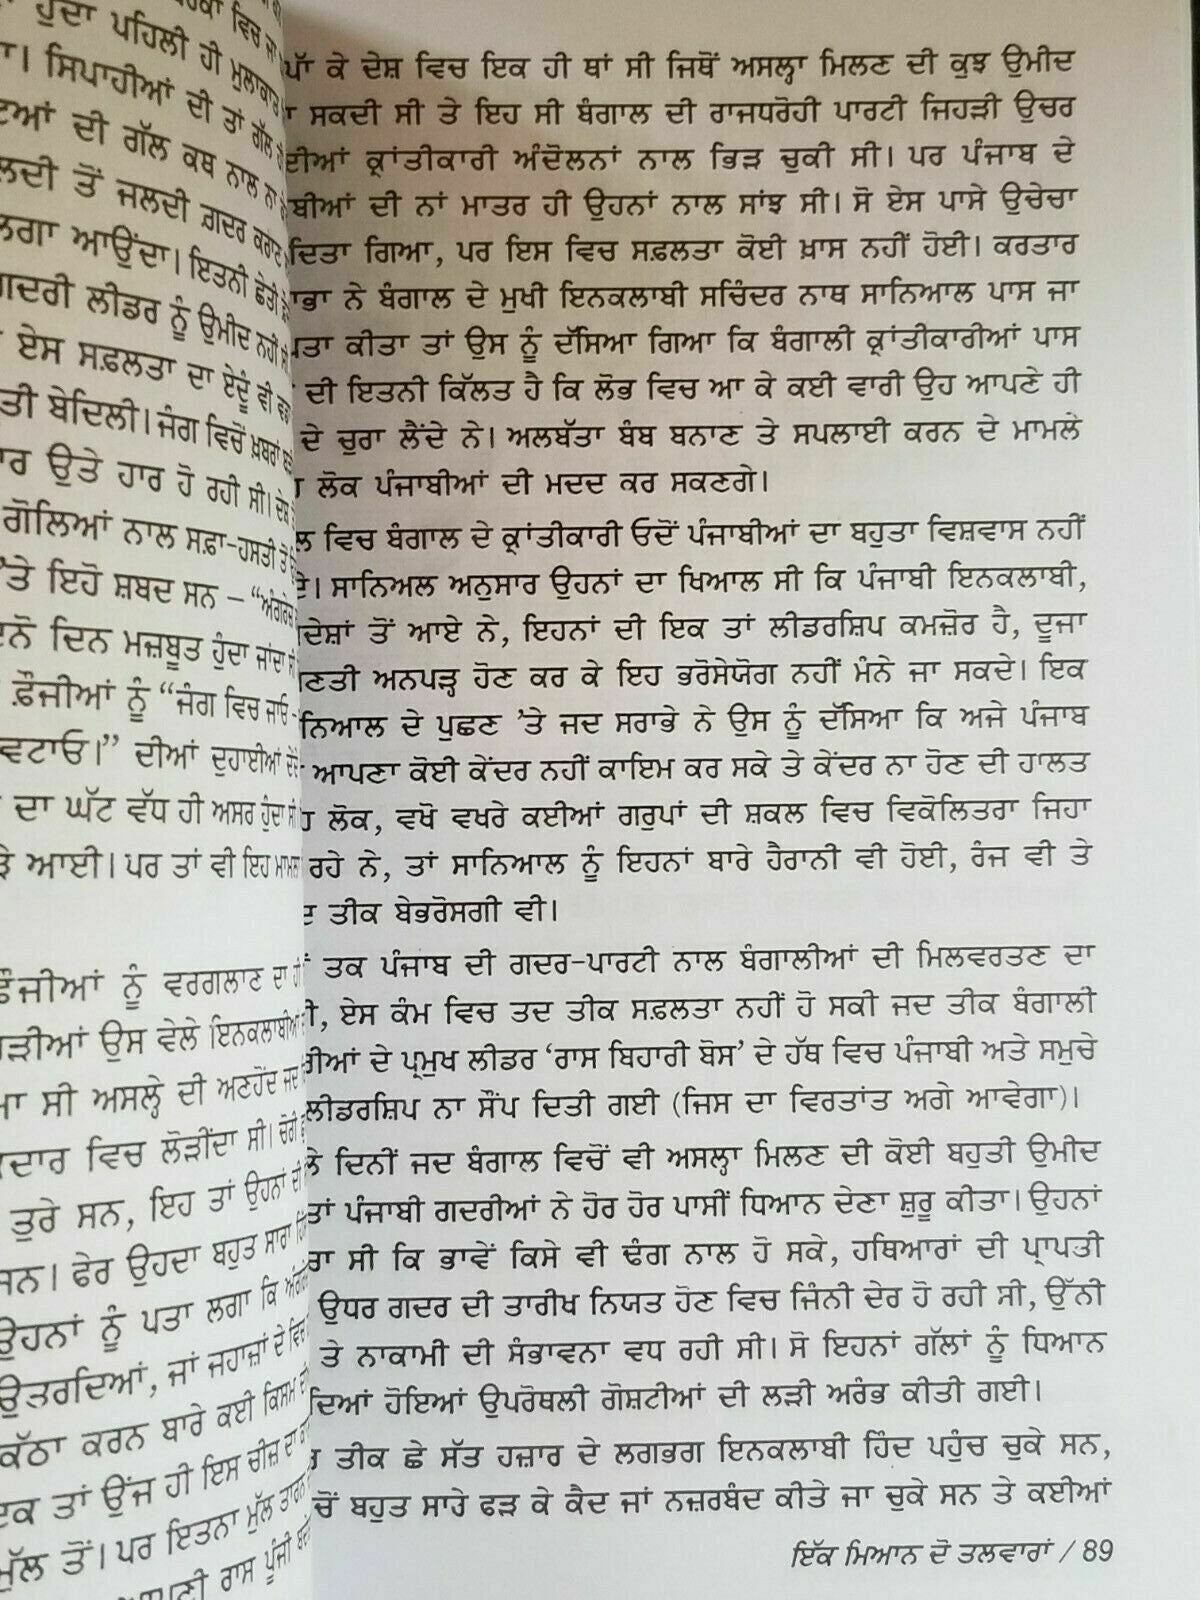 ਹੁੰਦਾ ਪਹਿਲੀ ਹੀ ਮੁਲਾਕਾਤ
ਸਿਪਾਹੀਆਂ ਦੀ ਤਾਂ ਗੱਲ
ਦੀ ਗੱਲ ਕਥ ਨਾਲ ਨਾ
ਤੋਂ ਜਲਦੀ ਗ਼ਦਰ ਕਰਾਣ
ਲਗਾ ਆਉਂਦਾ। ਇਤਨੀ ਛੇਤੀ
ਗਦਰੀ ਲੀਡਰ ਨੂੰ ਉਮੀਦ ਨਹੀਂ ਸੀ
ਏਸ ਸਫ਼ਲਤਾ ਦਾ ਏਦੂੰ ਵੀ ਵਡਾ
ਬੇਦਿਲੀ। ਜੰਗ ਵਿਚੋਂ ਖ਼ਬਰਾਂ
ਉਤੇ ਹਾਰ ਹੋ ਰਹੀ ਸੀ। ਦੇਸ਼
ਗੋਲਿਆਂ ਨਾਲ ਸਫ਼ਾ-ਹਸਤੀ ਤੋਂ
'ਤੇ ਇਹੋ ਸ਼ਬਦ ਸਨ – “ਅੰਗਰੇਜ਼
ਦਿਨ ਮਜ਼ਬੂਤ ਹੁੰਦਾ ਜਾਂਦਾ ਸੀ
ਫ਼ੌਜੀਆਂ ਨੂੰ “ਜੰਗ ਵਿਚ ਜਾਓ -
ਵਟਾਓ।” ਦੀਆਂ ਦੁਹਾਈਆਂ ਦੇਂਦੇ
ਦਾ ਘੱਟ ਵੱਧ ਹੀ ਅਸਰ ਹੁੰਦਾ ਸੀ
ਆਈ। ਪਰ ਤਾਂ ਵੀ ਇਹ ਮਾਮਲਾ
ਫ਼ੌਜੀਆਂ ਨੂੰ ਵਰਗਲਾਣ ਦਾ ਹੀ
ਉਸ ਵੇਲੇ ਇਨਕਲਾਬੀਆਂ
ਸੀ ਅਸਲ੍ਹੇ ਦੀ ਅਣਹੋਂਦ ਜਦ
ਵਿਚ ਲੋੜੀਂਦਾ ਸੀ। ਚੋਗੀ
ਤੁਰੇ ਸਨ, ਇਹ ਤਾਂ ਉਹਨਾਂ ਦੀ
ਸਨ। ਫੇਰ ਉਹਦਾ ਬਹੁਤ ਸਾਰਾ
ਉਹਨਾਂ ਨੂੰ ਪਤਾ ਲਗਾ ਕਿ
ਉਤਰਦਿਆਂ, ਜਾਂ ਜਹਾਜ਼ਾਂ ਦੇ ਵਿਚ
ਕੱਠਾ ਕਰਨ ਬਾਰੇ ਕਈ ਕਿਸਮ
ਤਾਂ ਉਂਜ ਹੀ ਇਸ ਚੀਜ਼ ਦਾ
ਮੁੱਲ ਤੋਂ। ਪਰ ਇਤਨਾ ਮੁੱਲ ਤਾਰਨ
ਰਾਸ ਪੂੰਜੀ
ਕੇ ਦੇਸ਼ ਵਿਚ ਇਕ ਹੀ ਥਾਂ ਸੀ ਜਿਥੋਂ ਅਸਲ੍ਹਾ ਮਿਲਣ ਦੀ ਕੁਝ ਉਮੀਦ
ਸਕਦੀ ਸੀ ਤੇ ਇਹ ਸੀ ਬੰਗਾਲ ਦੀ ਰਾਜਧਰੋਹੀ ਪਾਰਟੀ ਜਿਹੜੀ ਉਚਰ
ਦੀਆਂ ਕ੍ਰਾਂਤੀਕਾਰੀ ਅੰਦੋਲਨਾਂ ਨਾਲ ਭਿੜ ਚੁਕੀ ਸੀ। ਪਰ ਪੰਜਾਬ ਦੇ
ਬੀਆਂ ਦੀ ਨਾਂ ਮਾਤਰ ਹੀ ਉਹਨਾਂ ਨਾਲ ਸਾਂਝ ਸੀ। ਸੋ ਏਸ ਪਾਸੇ ਉਚੇਚਾ
ਦਿਤਾ ਗਿਆ, ਪਰ ਇਸ ਵਿਚ ਸਫ਼ਲਤਾ ਕੋਈ ਖ਼ਾਸ ਨਹੀਂ ਹੋਈ। ਕਰਤਾਰ
ਭਾ ਨੇ ਬੰਗਾਲ ਦੇ ਮੁਖੀ ਇਨਕਲਾਬੀ ਸਚਿੰਦਰ ਨਾਥ ਸਾਨਿਆਲ ਪਾਸ ਜਾ
ਪਤਾ ਕੀਤਾ ਤਾਂ ਉਸ ਨੂੰ ਦੱਸਿਆ ਗਿਆ ਕਿ ਬੰਗਾਲੀ ਕ੍ਰਾਂਤੀਕਾਰੀਆਂ ਪਾਸ
ਦੀ ਇਤਨੀ ਕਿੱਲਤ ਹੈ ਕਿ ਲੋਭ ਵਿਚ ਆ ਕੇ ਕਈ ਵਾਰੀ ਉਹ ਆਪਣੇ ਹੀ
ਦੇ ਚੁਰਾ ਲੈਂਦੇ ਨੇ। ਅਲਬੱਤਾ ਬੰਬ ਬਨਾਣ ਤੇ ਸਪਲਾਈ ਕਰਨ ਦੇ ਮਾਮਲੇ
ਲੋਕ ਪੰਜਾਬੀਆਂ ਦੀ ਮਦਦ ਕਰ ਸਕਣਗੇ।
ਵਿਚ ਬੰਗਾਲ ਦੇ ਕ੍ਰਾਂਤੀਕਾਰੀ ਓਦੋਂ ਪੰਜਾਬੀਆਂ ਦਾ ਬਹੁਤਾ ਵਿਸ਼ਵਾਸ ਨਹੀਂ
ਦੇ। ਸਾਨਿਅਲ ਅਨੁਸਾਰ ਉਹਨਾਂ ਦਾ ਖਿਆਲ ਸੀ ਕਿ ਪੰਜਾਬੀ ਇਨਕਲਾਬੀ,
ਦੇਸ਼ਾਂ ਤੋਂ ਆਏ ਨੇ, ਇਹਨਾਂ ਦੀ ਇਕ ਤਾਂ ਲੀਡਰਸ਼ਿਪ ਕਮਜ਼ੋਰ ਹੈ, ਦੂਜਾ
ਣਤੀ ਅਨਪੜ੍ਹ ਹੋਣ ਕਰ ਕੇ ਇਹ ਭਰੋਸੇਯੋਗ ਨਹੀਂ ਮੰਨੇ ਜਾ ਸਕਦੇ। ਇਕ
ਨਿਆਲ ਦੇ ਪੁਛਣ 'ਤੇ ਜਦ ਸਰਾਭੇ ਨੇ ਉਸ ਨੂੰ ਦੱਸਿਆ ਕਿ ਅਜੇ ਪੰਜਾਬ
ਆਪਣਾ ਕੋਈ ਕੇਂਦਰ ਨਹੀਂ ਕਾਇਮ ਕਰ ਸਕੇ ਤੇ ਕੇਂਦਰ ਨਾ ਹੋਣ ਦੀ ਹਾਲਤ
ਲੋਕ, ਵਖੋ ਵਖਰੇ ਕਈਆਂ ਗਰੁਪਾਂ ਦੀ ਸ਼ਕਲ ਵਿਚ ਵਿਕੋਲਿਤਰਾ ਜਿਹਾ
ਰਹੇ ਨੇ, ਤਾਂ ਸਾਨਿਆਲ ਨੂੰ ਇਹਨਾਂ ਬਾਰੇ ਹੈਰਾਨੀ ਵੀ ਹੋਈ, ਰੰਜ ਵੀ ਤੇ
ਤੀਕ ਬੇਭਰੋਸਗੀ ਵੀ।
ਤਕ ਪੰਜਾਬ ਦੀ ਗਦਰ-ਪਾਰਟੀ ਨਾਲ ਬੰਗਾਲੀਆਂ ਦੀ ਮਿਲਵਰਤਣ ਦਾ
ਏਸ ਕੰਮ ਵਿਚ ਤਦ ਤੀਕ ਸਫ਼ਲਤਾ ਨਹੀਂ ਹੋ ਸਕੀ ਜਦ ਤੀਕ ਬੰਗਾਲੀ
ਰੀਆਂ ਦੇ ਪ੍ਰਮੁਖ ਲੀਡਰ 'ਰਾਸ ਬਿਹਾਰੀ ਬੋਸ' ਦੇ ਹੱਥ ਵਿਚ ਪੰਜਾਬੀ ਅਤੇ ਸਮੁਚੇ
ਲੀਡਰਸ਼ਿਪ ਨਾ ਸੌਂਪ ਦਿਤੀ ਗਈ (ਜਿਸ ਦਾ ਵਿਰਤਾਂਤ ਅਗੇ ਆਵੇਗਾ)।
ਦਿਨੀਂ ਜਦ ਬੰਗਾਲ ਵਿਚੋਂ ਵੀ ਅਸਲ੍ਹਾ ਮਿਲਣ ਦੀ ਕੋਈ ਬਹੁਤੀ ਉਮੀਦ
ਤਾਂ ਪੰਜਾਬੀ ਗਦਰੀਆਂ ਨੇ ਹੋਰ ਹੋਰ ਪਾਸੀਂ ਧਿਆਨ ਦੇਣਾ ਸ਼ੁਰੂ ਕੀਤਾ। ਉਹਨਾਂ
ਰਾ ਸੀ ਕਿ ਭਾਵੇਂ ਕਿਸੇ ਵੀ ਢੰਗ ਨਾਲ ਹੋ ਸਕੇ, ਹਥਿਆਰਾਂ ਦੀ ਪ੍ਰਾਪਤੀ
ਉਧਰ ਗਦਰ ਦੀ ਤਾਰੀਖ ਨਿਯਤ ਹੋਣ ਵਿਚ ਜਿੰਨੀ ਦੇਰ ਹੋ ਰਹੀ ਸੀ, ਉੱਨੀ
ਤੇ ਨਾਕਾਮੀ ਦੀ ਸੰਭਾਵਨਾ ਵਧ ਰਹੀ ਸੀ। ਸੋ ਇਹਨਾਂ ਗੱਲਾਂ ਨੂੰ ਧਿਆਨ
ਦਿਆਂ ਹੋਇਆਂ ਉਪਰੋਥਲੀ ਗੋਸ਼ਟੀਆਂ ਦੀ ਲੜੀ ਅਰੰਭ ਕੀਤੀ ਗਈ।
ਤੀਕ ਛੇ ਸੱਤ ਹਜ਼ਾਰ ਦੇ ਲਗਭਗ ਇਨਕਲਾਬੀ ਹਿੰਦ ਪਹੁੰਚ ਚੁਕੇ ਸਨ,
ਚੋਂ ਬਹੁਤ ਸਾਰੇ ਫੜ ਕੇ ਕੈਦ ਜਾਂ ਨਜ਼ਰਬੰਦ ਕੀਤੇ ਜਾ ਚੁਕੇ ਸਨ ਤੇ ਕਈਆਂ
ਇੱਕ ਮਿਆਨ ਦੋ ਤਲਵਾਰਾਂ / 89